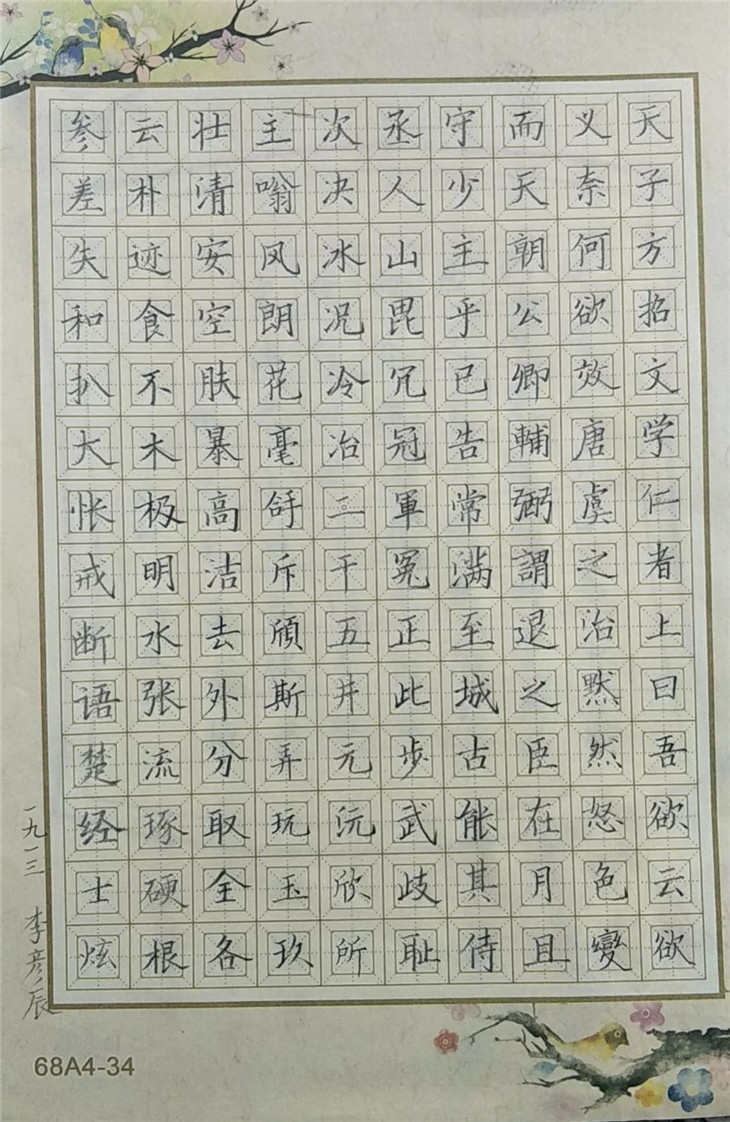 天子方招文学仁者上曰吾欲云欲
义奈何欲效唐虞之治黙然怒色變
而天朝公卿輔弼謂退之臣在月且
守少主乎已告常满至城古能其侍
丞人山毘冗冠軍冤正此步武歧耻
次决冰况冷冶二干五井元沅欣所
主嗡风朗花毫斥頎斯弄玩玉玖
壮清安空肤暴高洁去外分取全各
云朴迹食不木极明水张流琢硬根
参差失和扒大怅戒断语楚经士炫
一九一三 李彦辰
68A4-34